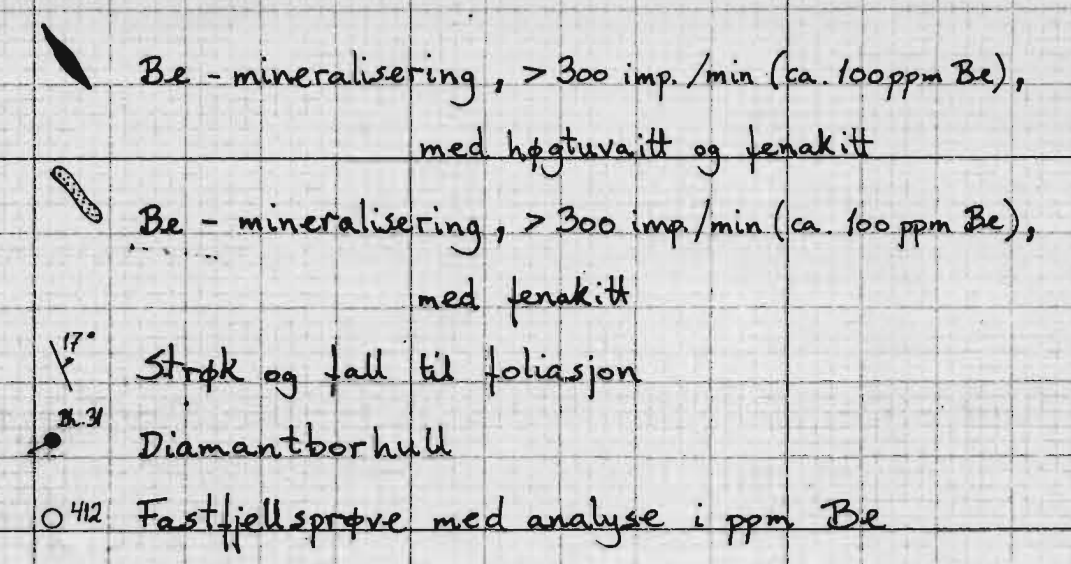 Be - mineralisering, > 300 imp./min (ca. 100 ppm Be),
med høgtuvaitt og fenakitt
Be - mineralisering, > 300 imp./min (ca. 100 ppm Be),
med fenakitt
17° Strøk og fall til foliasjon
Bh.31
Diamantborhull
412 Fastfjellsprøve med analyse i ppm Be